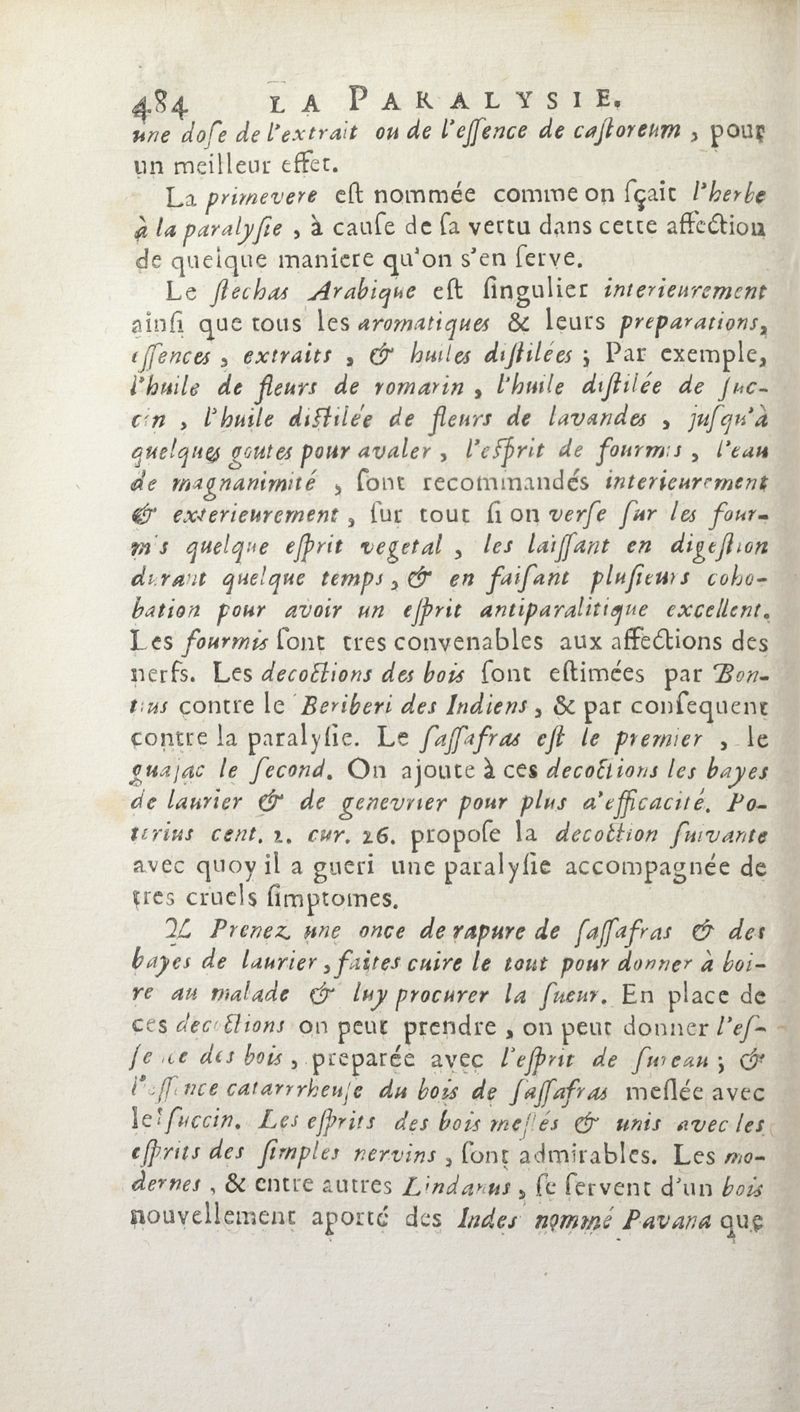 484 LA PARALYSIE.
une dose de l'extrait ou de l'essence de castoreum, pour
un meilleur effet.
La primevere est nommée comme on sçait l'herbe
à la paralysie, à cause de sa vertu dans cette affection
de quelque maniere qu'on s'en serve.
Le stechas Arabique est singulier interieurement
ainsi que tous les aromatiques & leurs preparations,
essences, extraits, & huiles distilées; Par exemple,
l'huile de fleurs de romarin, l'huile distilée de suc-
cin, l'huile distilée de fleurs de lavandes, jusqu'à
quelques goutes pour avaler, l'esprit de fourmis, l'eau
de magnanimité, sont recommandés interieurement
& exterieurement, sur tout si on verse sur les four-
mis quelque esprit vegetal, les laissant en digestion
durant quelque temps, & en faisant plusieurs coho-
bation pour avoir un esprit antiparalitique excellent.
Les fourmis sont tres convenables aux affections des
nerfs. Les decoctions des bois sont estimées par Bon-
tius contre le Beriberi des Indiens, & par consequent
contre la paralysie. Le sassafras est le premier, le
guajac le second. On ajoute à ces decoctions les bayes
de laurier & de genevrier pour plus d'efficacité. Po-
terius cent. 1. cur. 26. propose la decoction suivante
avec quoy il a gueri une paralysie accompagnée de
tres cruels simptomes.
℞ Prenez une once de rapure de sassafras & des
bayes de laurier, faites cuire le tout pour donner à boi-
re au malade & luy procurer la sueur. En place de
ces decoctions on peut prendre, on peut donner l'es-
sence des bois, preparée avec l'esprit de sureau; &
l'essence catarrrheuse du bois de sassafras meslée avec
le succin. Les esprits des bois meslés & unis avec les
esprits des simples nervins, sont admirables. Les mo-
dernes, & entre autres Lindanus, se servent d'un bois
nouvellement aporté des Indes nommé Pavana que